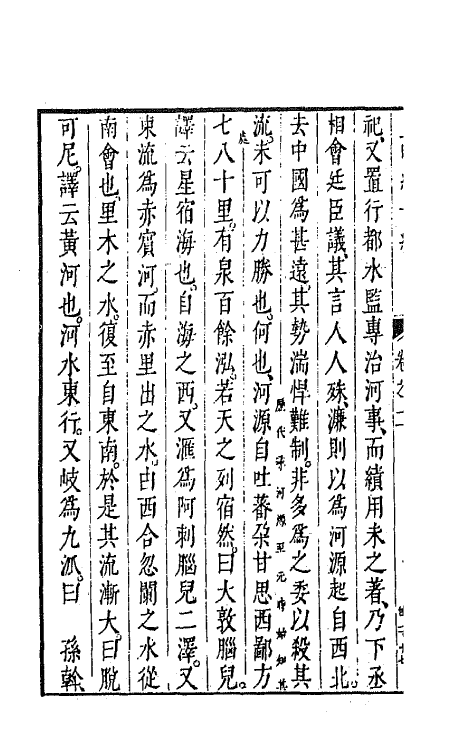 卷之二
祀又置行都水監專治河事而績用未之著乃下丞
相會廷臣議其言人人殊濂則以爲河源起自西北
去中國爲甚遠其勢湍悍難制非多爲之委以殺其
歷代求河源至元時始知其處
流未可以力勝也何也河源自吐蕃朶甘思西鄙方
七八十里有泉百餘泓若天之列宿然曰大敦腦兒
譯云星宿海也自海之西又滙爲阿剌腦兒二澤又
東流爲赤賓河而赤里出之水由西合忽闌之水從
南會也里木之水復至自東南於是其流漸大曰脫
可尼譯云黃河也河水東行又岐爲九派曰 孫斡